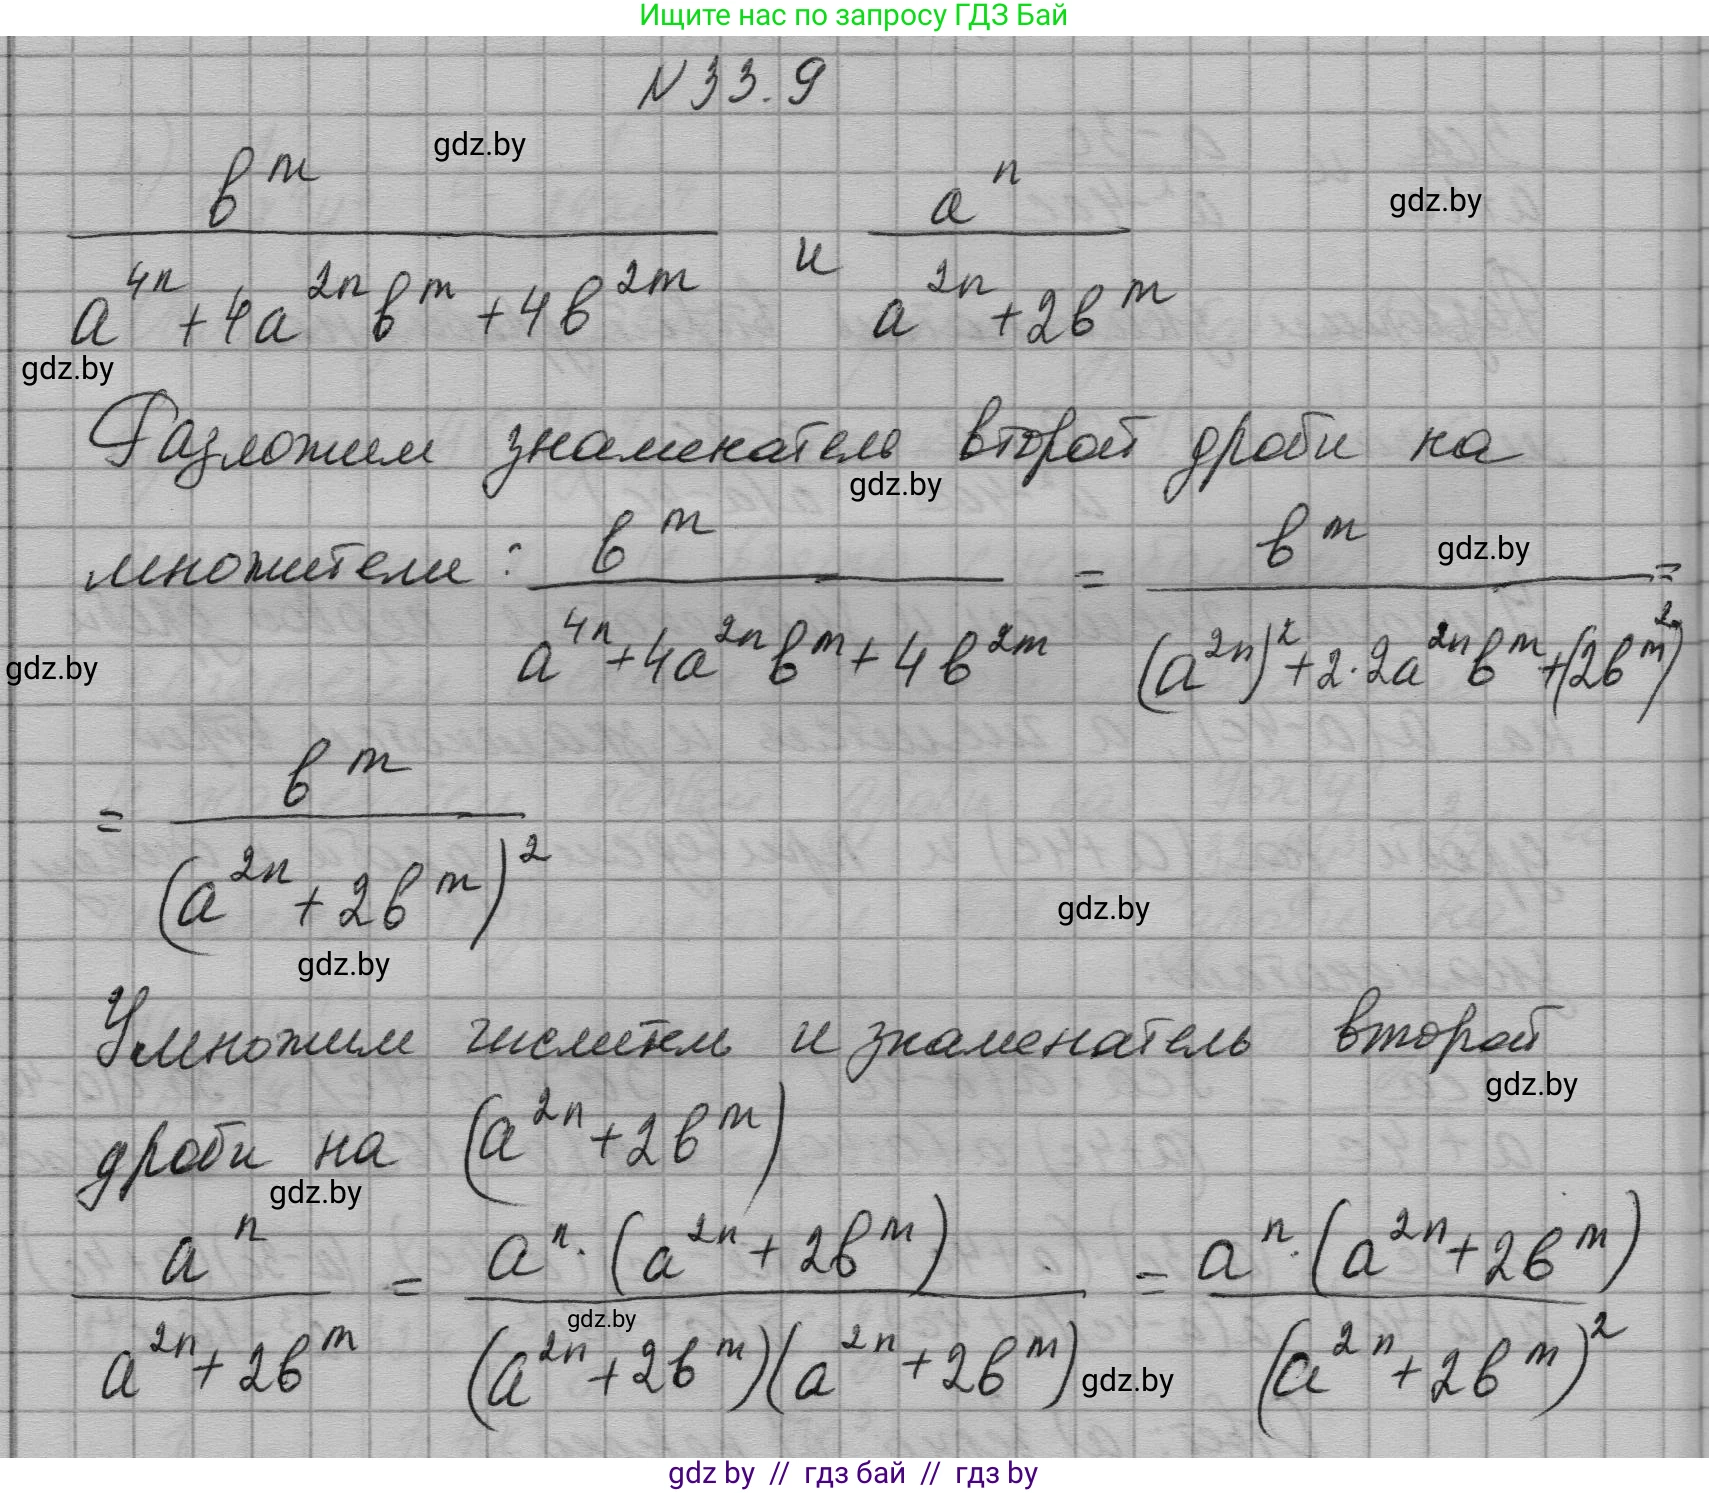 Ищите нас по запросу ГДЗ Бай
N 33.9
gdz.by
b^m / (a^{4n} + 4a^{2n}b^m + 4b^{2m}) и a^n / (a^{2n} + 2b^m)
gdz.by
gdz.by
Разложим знаменатель второй дроби на
gdz.by
множители: b^m / (a^{4n} + 4a^{2n}b^m + 4b^{2m}) = b^m / ((a^{2n})^2 + 2·2a^{2n}b^m + (2b^m)^2) =
gdz.by
gdz.by
= b^m / (a^{2n} + 2b^m)^2
gdz.by
gdz.by
Умножим числитель и знаменатель второй
gdz.by
дроби на (a^{2n} + 2b^m)
gdz.by
a^n / (a^{2n} + 2b^m) = a^n · (a^{2n} + 2b^m) / ((a^{2n} + 2b^m)(a^{2n} + 2b^m)) = a^n · (a^{2n} + 2b^m) / (a^{2n} + 2b^m)^2
gdz.by
gdz.by
gdz by // гдз бай // гдз by